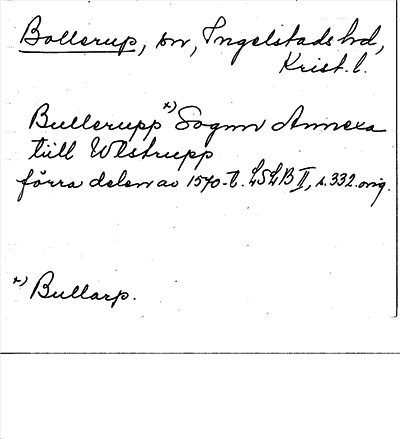 Bollerup, sn, Ingelstads hd,
Krist. l.
Bullerupp *) Sogn Annexa
tiill Ulstrupp
förra delen av 1570-t. LSLB II, s. 332. orig.
*) Bullarp.